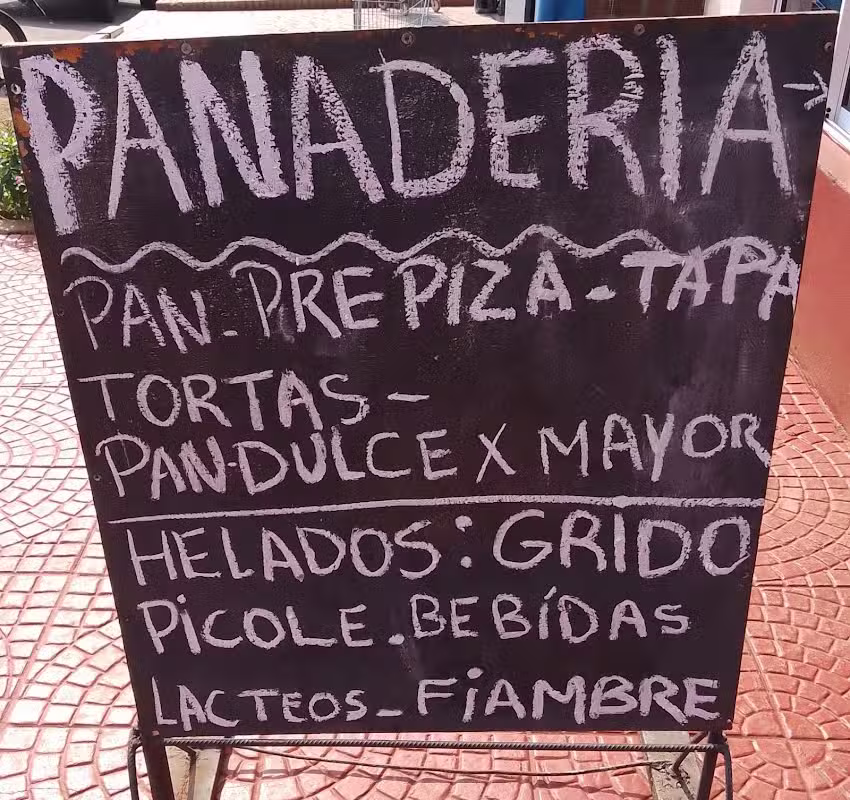 PANADERIA →
PAN-PRE PIZA-TAPA
TORTAS-
PAN-DULCE X MAYOR
HELADOS: GRIDO
PiCOLE.BEBíDAS
LACTEOS-FiAMBRE